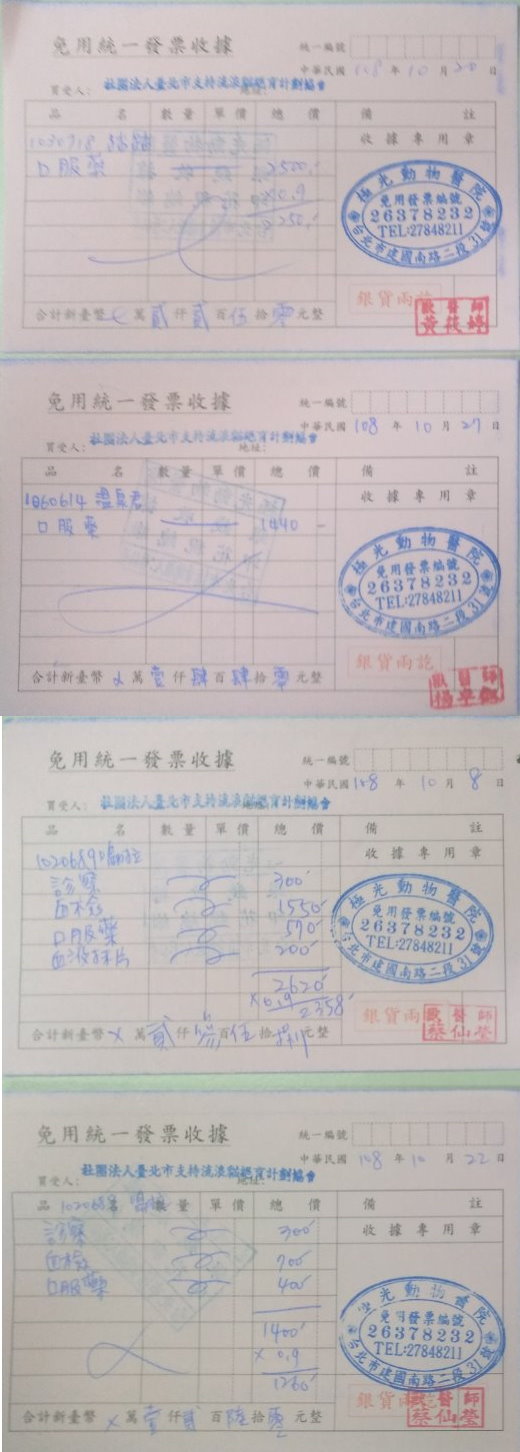 免用統一發票收據
統一編號
中華民國 108 年 10 月 20 日
買受人: 社團法人臺北市支持流浪貓絕育計劃協會
品 名 數量 單價 總 價 備 註
收據專用章
1030718
口服藥 2500
×0.9
2250
極光動物醫院
免用發票編號
26378232
TEL:27848211
台北市建國南路二段31號
銀貨兩訖
獸醫師
黃筱婷
合計新臺幣 × 萬 貳 仟 貳 百 伍 拾 零 元整
免用統一發票收據
統一編號
中華民國 108 年 10 月 27 日
買受人: 社團法人臺北市支持流浪貓絕育計劃協會
地址:
品 名 數量 單價 總 價 備 註
收據專用章
1060614 溫泉君
口服藥 1440 -
極光動物醫院
免用發票編號
26378232
TEL:27848211
台北市建國南路二段31號
銀貨兩訖
獸醫師
合計新臺幣 × 萬 壹 仟 肆 百 肆 拾 零 元整
免用統一發票收據
統一編號
中華民國 108 年 10 月 8 日
買受人: 社團法人臺北市支持流浪貓絕育計劃協會
品 名 數量 單價 總 價 備 註
收據專用章
診察 300
血檢 1550
口服藥 570
血液抹片 200
2620
×0.9
2358
極光動物醫院
免用發票編號
26378232
TEL:27848211
台北市建國南路二段31號
銀貨兩訖
獸醫師
蔡仙瑩
合計新臺幣 × 萬 貳 仟 參 百 伍 拾 捌 元整
免用統一發票收據
統一編號
中華民國 108 年 10 月 22 日
買受人: 社團法人臺北市支持流浪貓絕育計劃協會
地址:
品 名 數量 單價 總 價 備 註
收據專用章
診察 300
血檢 700
口服藥 400
1400
×0.9
1260
極光動物醫院
免用發票編號
26378232
TEL:27848211
台北市建國南路二段31號
銀貨兩訖
獸醫師
蔡仙瑩
合計新臺幣 × 萬 壹 仟 貳 百 陸 拾 零 元整